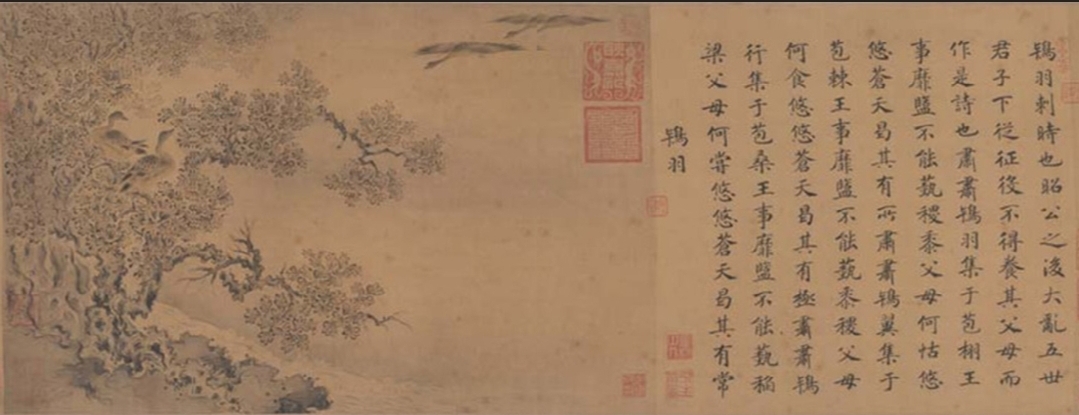 鴇羽刺時也昭公之後大亂五世
君子下從征役不得養其父母而
作是詩也肅肅鴇羽集于苞栩王
事靡盬不能蓺稷黍父母何怙悠
悠蒼天曷其有所肅肅鴇翼集于
苞棘王事靡盬不能蓺黍稷父母
何食悠悠蒼天曷其有極肅肅鴇
行集于苞桑王事靡盬不能蓺稻
梁父母何嘗悠悠蒼天曷其有常
鴇羽